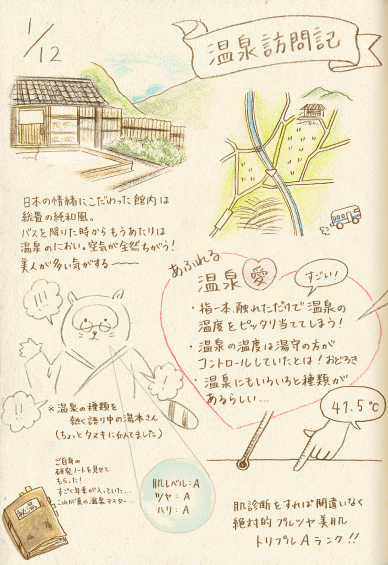 1/12
温泉訪問記
日本の情緒にこだわった館内は
総畳の純和風。
バスを降りた時からもうあたりは
温泉のにおい。空気が全然ちがう！
美人が多い気がする〜〜
あふれる
温泉愛
すごい！
・指一本、触れただけで温泉の
温度をピッタリ当ててしまう！
・温泉の温度は湯守の方が
コントロールしていたとは！おどろき
・温泉にもいろいろと種類が
あるらしい…
41.5℃
!!!
!!
!!
※温泉の種類を
熱く語り中の湯本さん
（ちょっとタヌキに似てました）
ご自身の
研究ノートを見せて
もらった！
すごく年季が入っていた…
これが真の温泉マスター…
肌レベル：A
ツヤ：A
ハリ：A
肌診断をすれば間違いなく
絶対的プルツヤ美肌
トリプルAランク!!